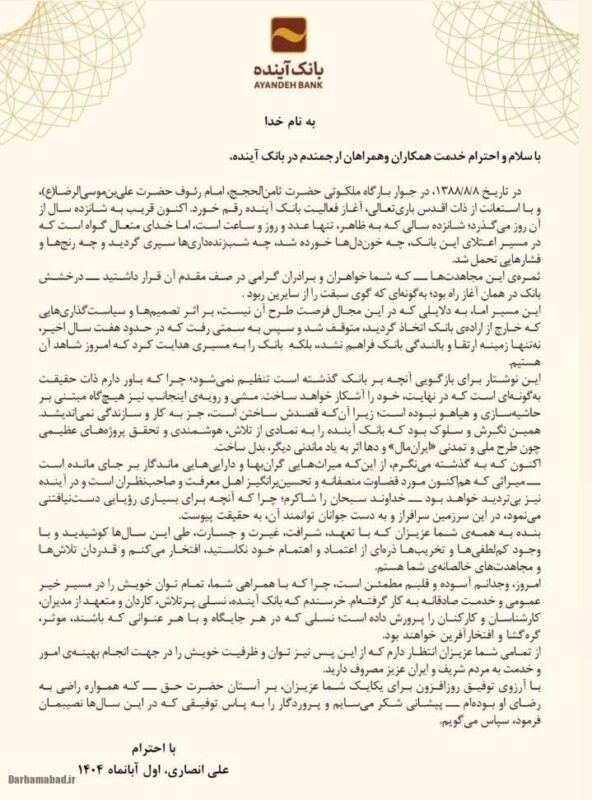 بانک آینده
AYANDEH BANK
به نام خدا
با سلام و احترام خدمت همکاران وهمراهان ارجمندم در بانک آینده،
در تاریخ ۱۳۸۸/۸/۸، در جوار بارگاه ملکوتی حضرت ثامن‌الحجج، امام رئوف حضرت علی‌بن‌موسی‌الرضا(ع)،
و با استعانت از ذات اقدس باری‌تعالی، آغاز فعالیت بانک آینده رقم خورد. اکنون قریب به شانزده سال از
آن روز می‌گذرد؛ شانزده سالی که به ظاهر، تنها عدد و روز و ساعت است، اما خدای متعال گواه است که
در مسیر اعتلای این بانک، چه خون‌دل‌ها خورده شد، چه شب‌زنده‌داری‌ها سپری گردید و چه رنج‌ها و
فشارهایی تحمل شد.
ثمره‌ی این مجاهدت‌ها ــ که شما خواهران و برادران گرامی در صف مقدم آن قرار داشتید ــ درخشش
بانک در همان آغاز راه بود؛ به‌گونه‌ای که گوی سبقت را از سایرین ربود .
این مسیر اما، به دلایلی که در این مجال فرصت طرح آن نیست، بر اثر تصمیم‌ها و سیاست‌گذاری‌هایی
که خارج از اراده‌ی بانک اتخاذ گردید، متوقف شد و سپس به سمتی رفت که در حدود هفت سال اخیر،
نه‌تنها زمینه ارتقا و بالندگی بانک فراهم نشد،، بلکه بانک را به مسیری هدایت کرد که امروز شاهد آن
هستیم.
این نوشتار برای بازگویی آنچه بر بانک گذشته است تنظیم نمی‌شود؛ چرا که باور دارم ذات حقیقت
به‌گونه‌ای است که در نهایت، خود را آشکار خواهد ساخت. مشی و رویه‌ی اینجانب نیز هیچ‌گاه مبتنی بر
حاشیه‌سازی و هیاهو نبوده است؛ زیرا آن‌که قصدش ساختن است، جز به کار و سازندگی نمی‌اندیشد.
همین نگرش و سلوک بود که بانک آینده را به نمادی از تلاش، هوشمندی و تحقق پروژه‌های عظیمی
چون طرح ملی و تمدنی «ایران‌مال» و ده‌ها اثر به یاد ماندنی دیگر، بدل ساخت.
اکنون که به گذشته می‌نگرم، از این‌که میراث‌هایی گران‌بها و دارایی‌هایی ماندگار بر جای مانده است
ــ میراثی که هم‌اکنون مورد قضاوت منصفانه و تحسین‌برانگیز اهل معرفت و صاحب‌نظران است و در آینده
نیز بی‌تردید خواهد بود ــ خداوند سبحان را شاکرم؛ چرا که آنچه برای بسیاری رؤیایی دست‌نیافتنی
می‌نمود، در این سرزمین سرافراز و به دست جوانان توانمند آن، به حقیقت پیوست.
بنده به همه‌ی شما عزیزان که با تعهد، شرافت، غیرت و جسارت، طی این سال‌ها کوشیدید و با
وجود کم‌لطفی‌ها و تخریب‌ها ذره‌ای از اعتماد و اهتمام خود نکاستید، افتخار می‌کنم و قدردان تلاش‌ها
و مجاهدت‌های خالصانه‌ی شما هستم.
امروز، وجدانم آسوده و قلبم مطمئن است، چرا که با همراهی شما، تمام توان خویش را در مسیر خیر
عمومی و خدمت صادقانه به کار گرفته‌ام. خرسندم که بانک آینده، نسلی پرتلاش، کاردان و متعهد از مدیران،
کارشناسان و کارکنان را پرورش داده است؛ نسلی که در هر جایگاه و با هر عنوانی که باشند، موثر،
گره‌گشا و افتخارآفرین خواهند بود.
از تمامی شما عزیزان انتظار دارم که از این پس نیز توان و ظرفیت خویش را در جهت انجام بهینه‌ی امور
و خدمت به مردم شریف و ایران عزیز مصروف دارید.
با آرزوی توفیق روزافزون برای یکایک شما عزیزان، بر آستان حضرت حق ــ که همواره راضی به
رضای او بوده‌ام ــ پیشانی شکر می‌سایم و پروردگار را به پاس توفیقی که در این سال‌ها نصیبمان
فرمود، سپاس می‌گویم.
با احترام
علی انصاری، اول آبانماه ۱۴۰۴
Darhamabad.ir